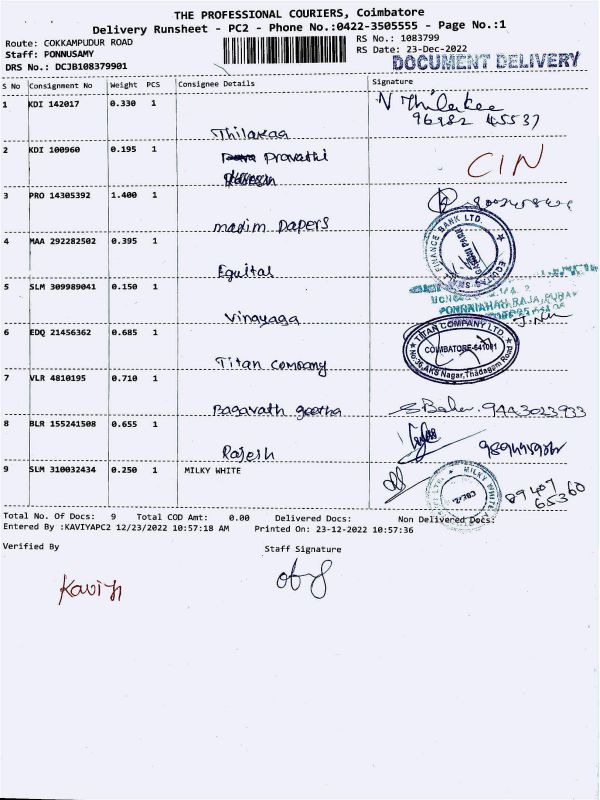 THE PROFESSIONAL COURIERS, Coimbatore
Delivery Runsheet - PC2 - Phone No.:0422-3505555 - Page No.:1
Route: COKKAMPUDUR ROAD
RS No.: 1083799
Staff: PONNUSAMY
RS Date: 23-Dec-2022
DRS No.: DCJB108379901
DOCUMENT DELIVERY
S No Consignment No Weight PCS Consignee Details Signature
1 KDI 142017 0.330 1
N Thilakaa
96982 45537
Thilakaa
2 KDI 100960 0.195 1
Pravathi
CIN
3 PRO 14305392 1.400 1
maxim papers
4 MAA 292282502 0.395 1
FINANCE BANK LTD.
Equitas
5 SLM 309989041 0.150 1
Vinayaga
PONNAIAHRAJAPURAM
6 EDQ 21456362 0.685 1
TITAN COMPANY LTD
COIMBATORE-641001
AKS Nagar, Thadagam Road
Titan company
7 VLR 4810195 0.710 1
Bagavath geetha
9443023933
8 BLR 155241508 0.655 1
Rajesh
9 SLM 310032434 0.250 1 MILKY WHITE
MILKY WHITE
89407
65360
Total No. Of Docs: 9 Total COD Amt: 0.00 Delivered Docs: Non Delivered Docs:
Entered By :KAVIYAPC2 12/23/2022 10:57:18 AM Printed On: 23-12-2022 10:57:36
Verified By
Staff Signature
Kaviya